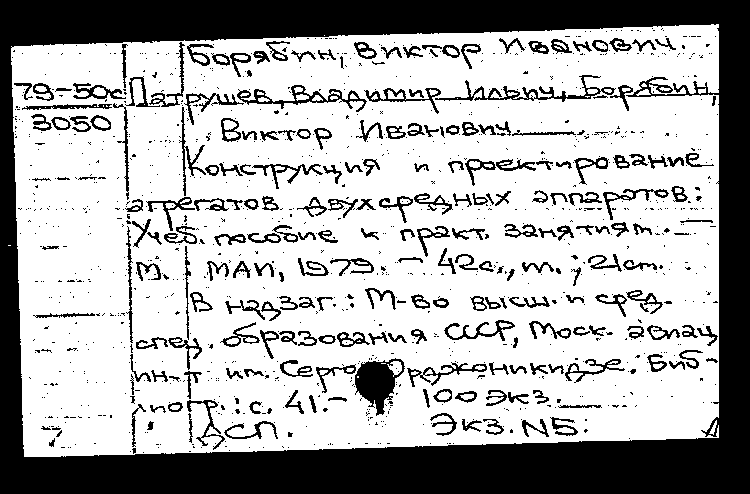 Борябин, Виктор Иванович.
79-50с Патрушев, Владимир Ильич, Борябин,
3050 Виктор Иванович.
Конструкция и проектирование
агрегатов двухсредных аппаратов:
Учеб. пособие к практ. занятиям. —
М.: МАИ, 1979. — 42с., т.; 21см.
В надзаг.: М-во высш. и сред.
спец. образования СССР, Моск. авиац
ин-т им. Серго Орджоникидзе. Биб-
лиогр.: с. 41. — 100 экз.
7 ДСП. Экз. N5.